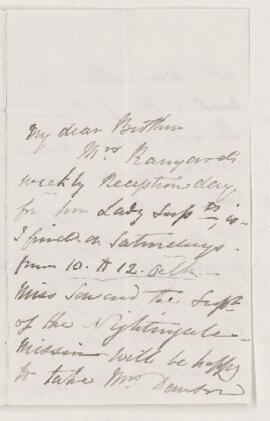 My dear Brother
Mrs Ranyard's
weekly Reception day,
for her Lady Supts, is
I find on Saturdays -
from 10. to 12. o'clk -
Miss the Supt
of the Nightingale
Mission will be happy
to take Mrs Dawson